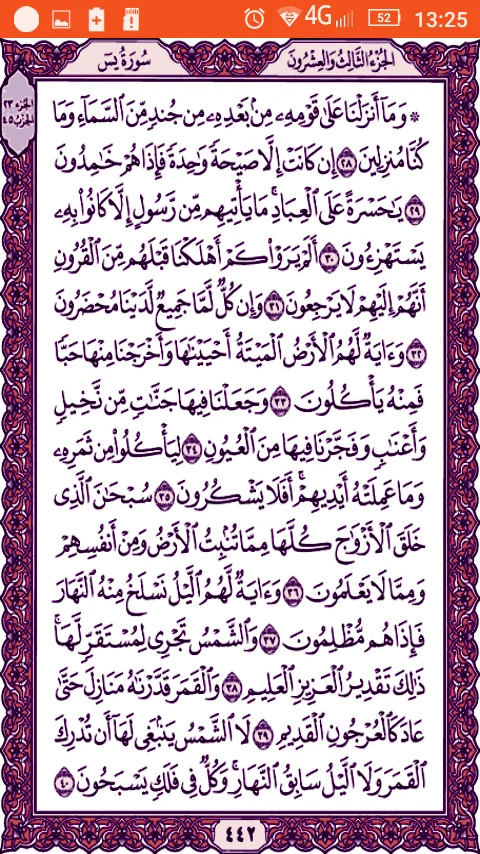 4G 52 13:25
الجُزْءُ الثَّالِثُ وَالعِشْرُونَ سُورَةُ يسٓ
الجزء ٢٣
الحزب ٤٥
* وَمَآ أَنزَلْنَا عَلَىٰ قَوْمِهِۦ مِنۢ بَعْدِهِۦ مِن جُندٍ مِّنَ ٱلسَّمَآءِ وَمَا
كُنَّا مُنزِلِينَ ٢٨ إِن كَانَتْ إِلَّا صَيْحَةً وَٰحِدَةً فَإِذَا هُمْ خَٰمِدُونَ
٢٩ يَٰحَسْرَةً عَلَى ٱلْعِبَادِ ۚ مَا يَأْتِيهِم مِّن رَّسُولٍ إِلَّا كَانُوا۟ بِهِۦ
يَسْتَهْزِءُونَ ٣٠ أَلَمْ يَرَوْا۟ كَمْ أَهْلَكْنَا قَبْلَهُم مِّنَ ٱلْقُرُونِ
أَنَّهُمْ إِلَيْهِمْ لَا يَرْجِعُونَ ٣١ وَإِن كُلٌّ لَّمَّا جَمِيعٌ لَّدَيْنَا مُحْضَرُونَ
٣٢ وَءَايَةٌ لَّهُمُ ٱلْأَرْضُ ٱلْمَيْتَةُ أَحْيَيْنَٰهَا وَأَخْرَجْنَا مِنْهَا حَبًّا
فَمِنْهُ يَأْكُلُونَ ٣٣ وَجَعَلْنَا فِيهَا جَنَّٰتٍ مِّن نَّخِيلٍ
وَأَعْنَٰبٍ وَفَجَّرْنَا فِيهَا مِنَ ٱلْعُيُونِ ٣٤ لِيَأْكُلُوا۟ مِن ثَمَرِهِۦ
وَمَا عَمِلَتْهُ أَيْدِيهِمْ ۖ أَفَلَا يَشْكُرُونَ ٣٥ سُبْحَٰنَ ٱلَّذِى
خَلَقَ ٱلْأَزْوَٰجَ كُلَّهَا مِمَّا تُنۢبِتُ ٱلْأَرْضُ وَمِنْ أَنفُسِهِمْ
وَمِمَّا لَا يَعْلَمُونَ ٣٦ وَءَايَةٌ لَّهُمُ ٱلَّيْلُ نَسْلَخُ مِنْهُ ٱلنَّهَارَ
فَإِذَا هُم مُّظْلِمُونَ ٣٧ وَٱلشَّمْسُ تَجْرِى لِمُسْتَقَرٍّ لَّهَا ۚ
ذَٰلِكَ تَقْدِيرُ ٱلْعَزِيزِ ٱلْعَلِيمِ ٣٨ وَٱلْقَمَرَ قَدَّرْنَٰهُ مَنَازِلَ حَتَّىٰ
عَادَ كَٱلْعُرْجُونِ ٱلْقَدِيمِ ٣٩ لَا ٱلشَّمْسُ يَنۢبَغِى لَهَآ أَن تُدْرِكَ
ٱلْقَمَرَ وَلَا ٱلَّيْلُ سَابِقُ ٱلنَّهَارِ ۚ وَكُلٌّ فِى فَلَكٍ يَسْبَحُونَ ٤٠
٤٤٢